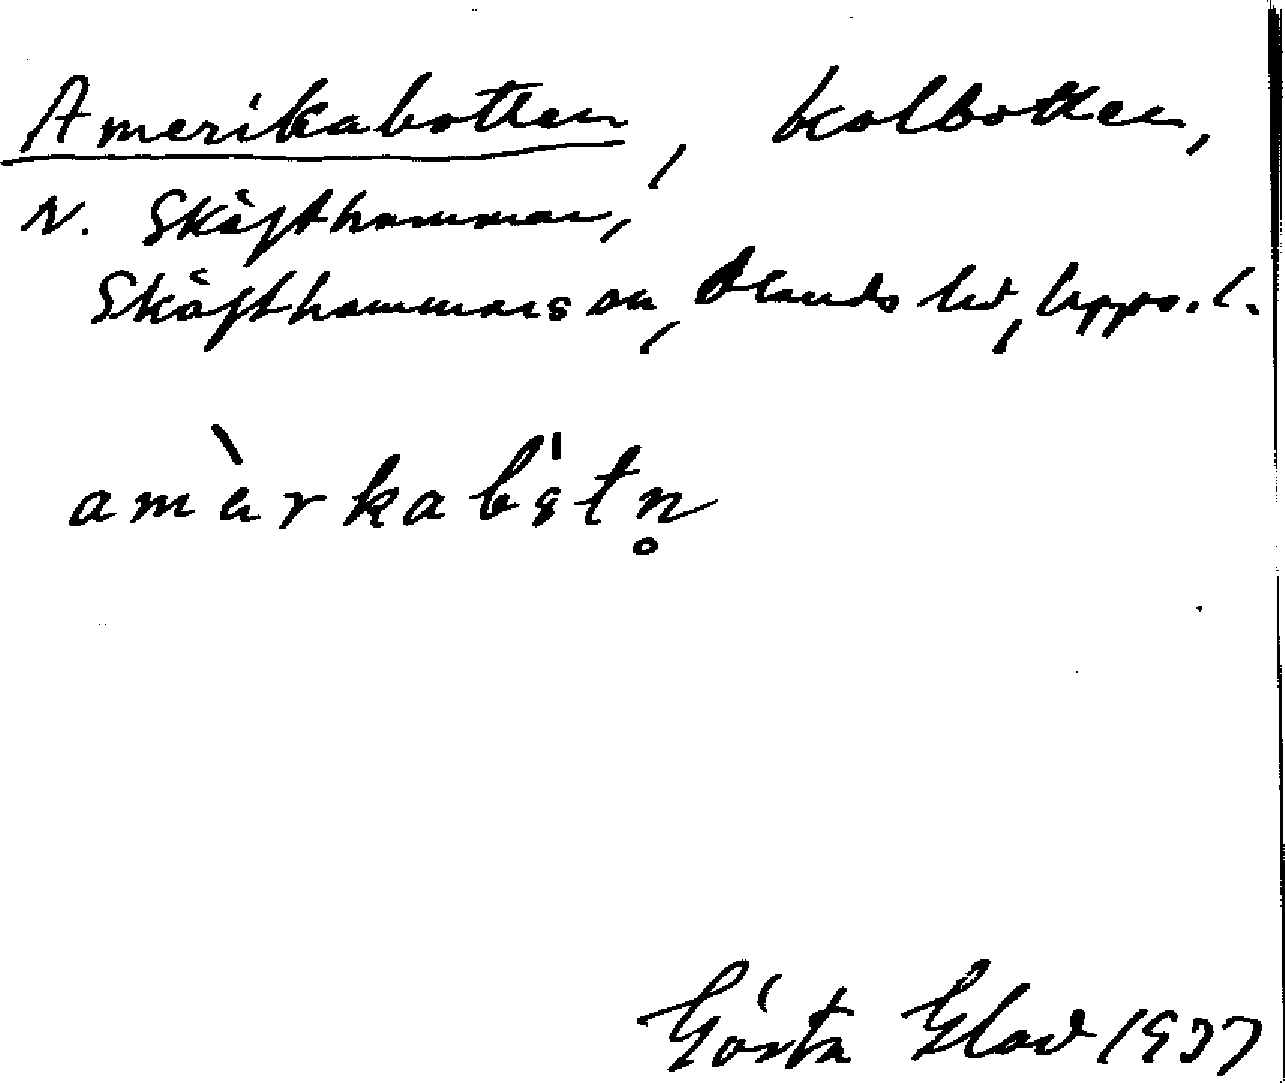 Amerikabotten, kolbotten,
N. Skäfthammar,
Skäfthammars sn, Olands hd, Upps. l.
Gösta Glad 1937